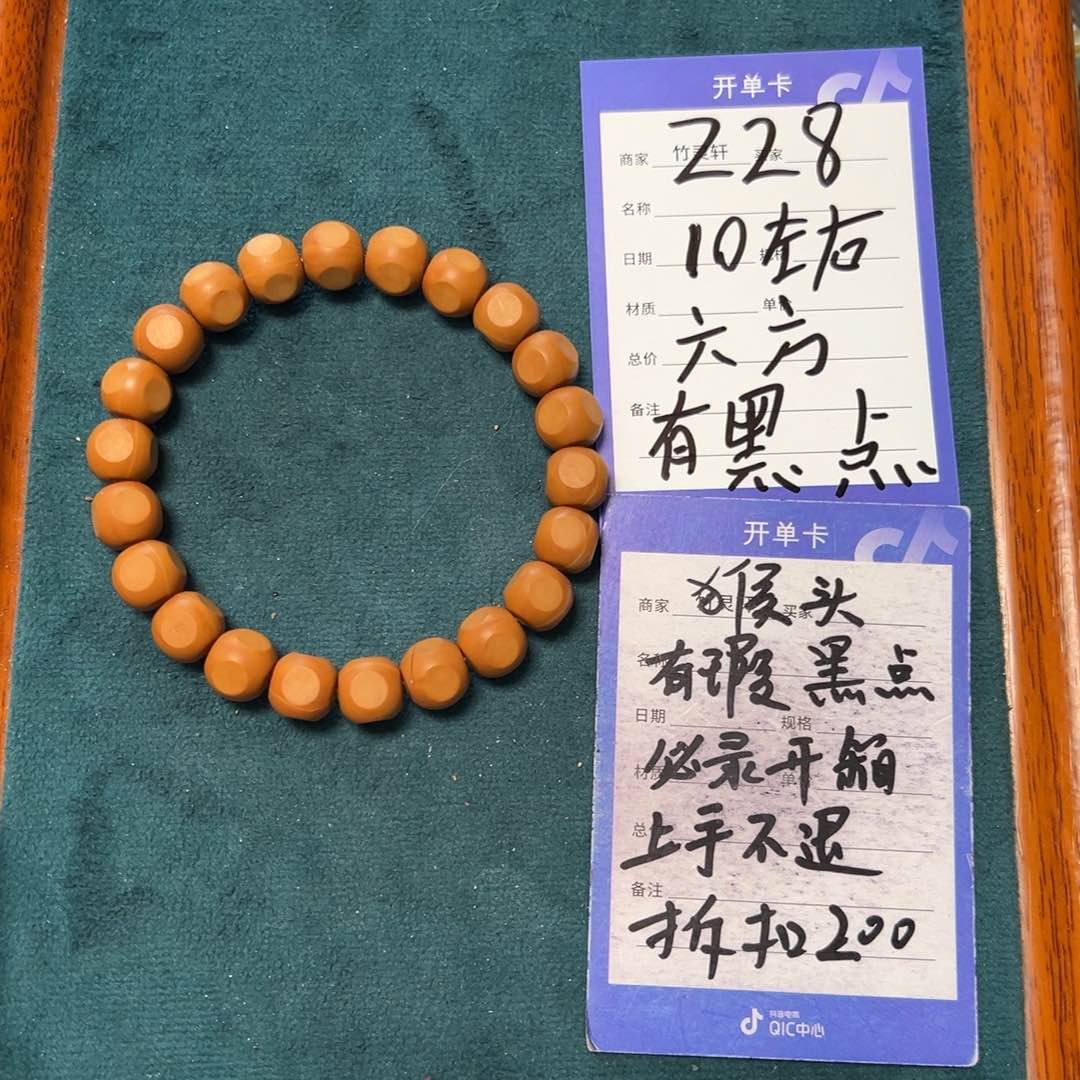 开单卡
Z28
商家 竹灵轩 买家
名称
10左右
日期 规格
材质 单价
六方
总价
备注
有黑点
开单卡
猴头
商家 买家
名称
有瑕黑点
日期 规格
必录开箱
材质 单
上手不退
总价
备注
拆扣200
抖音电商
QIC中心